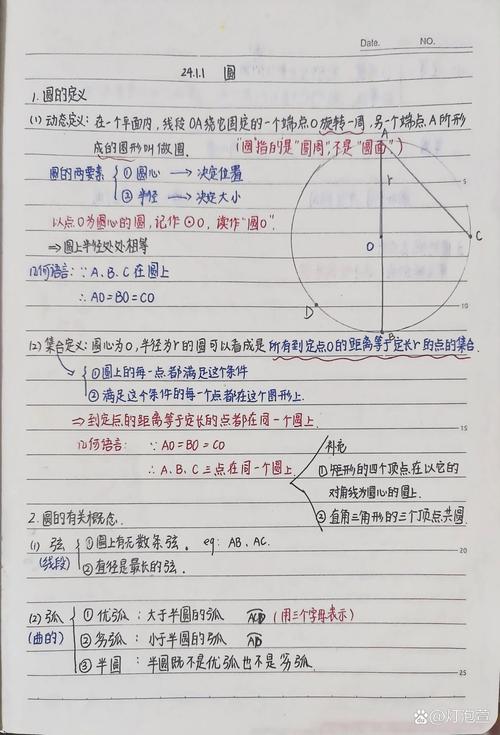 Date. NO.
24.1.1 圆
1. 圆的定义
(1) 动态定义: 在一个平面内, 线段OA绕它固定的一个端点O旋转一周, 另一个端点A所形
成的图形叫做圆. ("圆"指的是"圆周",不是"圆面")
圆的两要素 ① 圆心 → 决定位置
② 半径 → 决定大小
以点O为圆心的圆, 记作⊙O, 读作"圆O".
⇒ 圆上半径处处相等
几何语言: ∵ A、B、C在圆上
∴ AO=BO=CO
A
r
O
C
D
B
5
10
(2) 集合定义: 圆心为O, 半径为r的圆可以看成是所有到定点O的距离等于定长r的点的集合.
① 圆上的每一点都满足这个条件
② 满足这个条件的每一个点都在这个图形上.
⇒ 到定点的距离等于定长的点都在同一个圆上.
15
几何语言: ∵ AO=BO=CO
∴ A、B、C三点在同一个圆上
补充
① 矩形的四个顶点在以它的
对角线为圆心的圆上.
② 直角三角形的三个顶点共圆
2. 圆的有关概念.
(1) 弦 ① 圆上有无数条弦. eg: AB、AC.
(线段) ② 直径是最长的弦.
20
(2) 弧 ① 优弧: 大于半圆的弧 ACD (用三个字母表示)
(曲的) ② 劣弧: 小于半圆的弧 AD
③ 半圆: 半圆既不是优弧也不是劣弧.
25
@灯泡萱